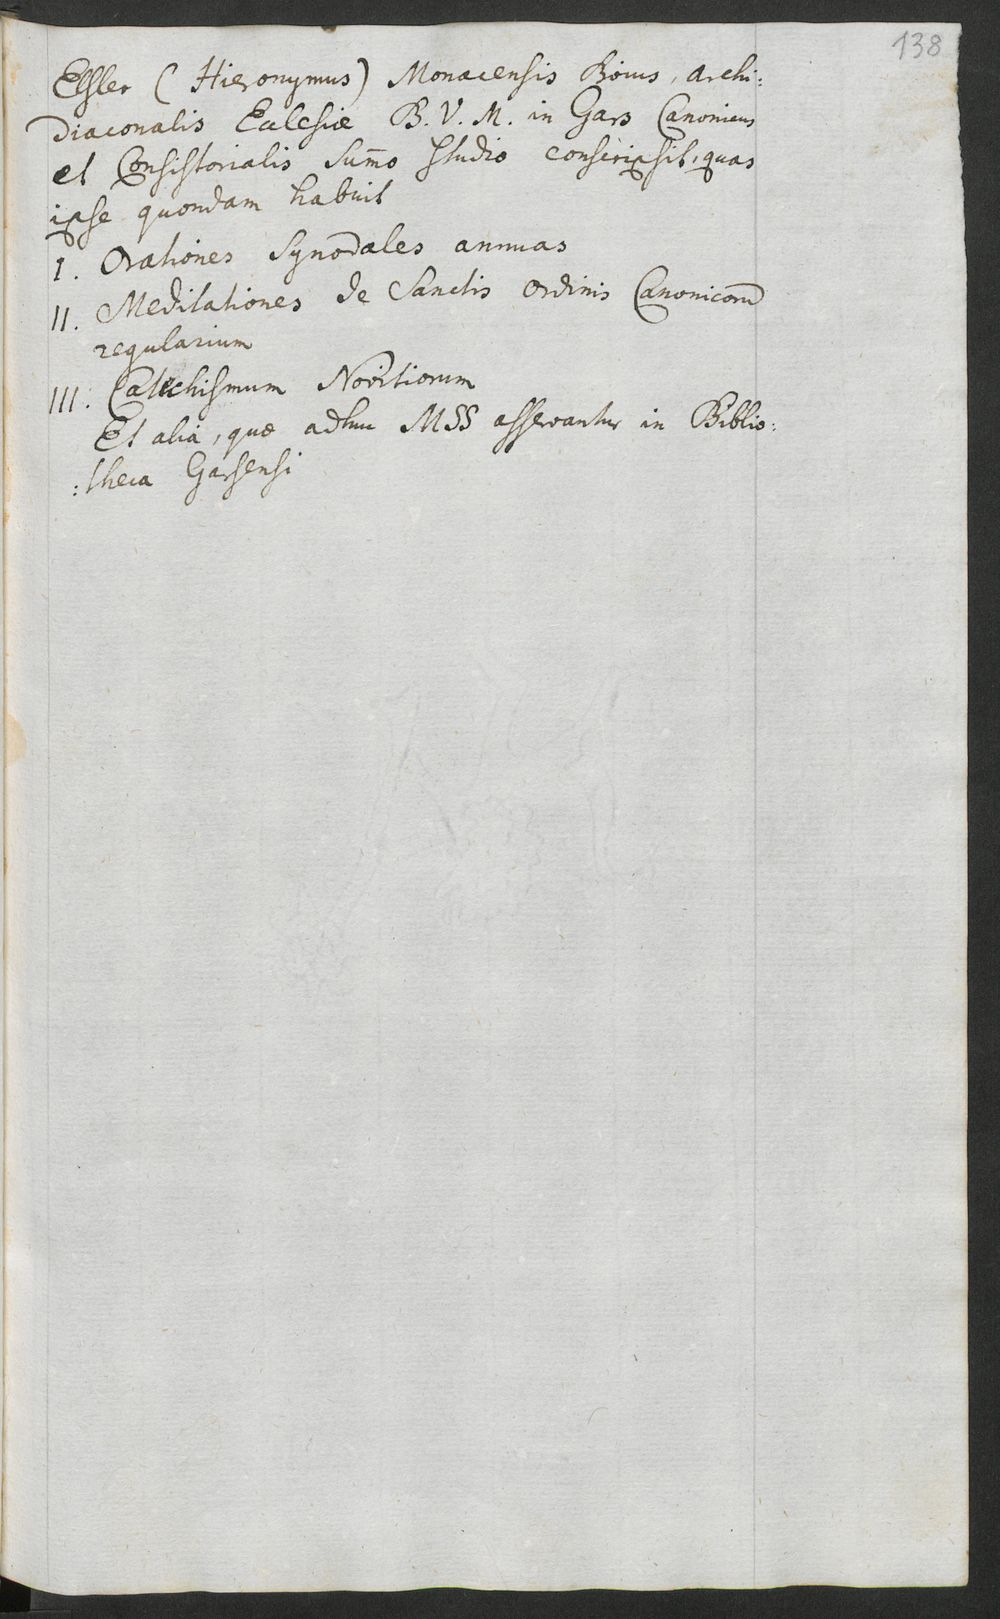 138
Elsler (Hieronymus) Monacensis Boius, Archi:
diaconalis Ecclesiæ B. V. M. in Gars Canonicus
et Consistorialis Sum̄o studio conscripsit, quas
ipse quondam habuit
I. Orationes Synodales annuas
II. Meditationes de Sanctis ordinis Canonicorū
regularium
III. Catechismum Novitiorum
Et alia, quæ adhuc MSS asservantur in Biblio:
:theca Garsensi